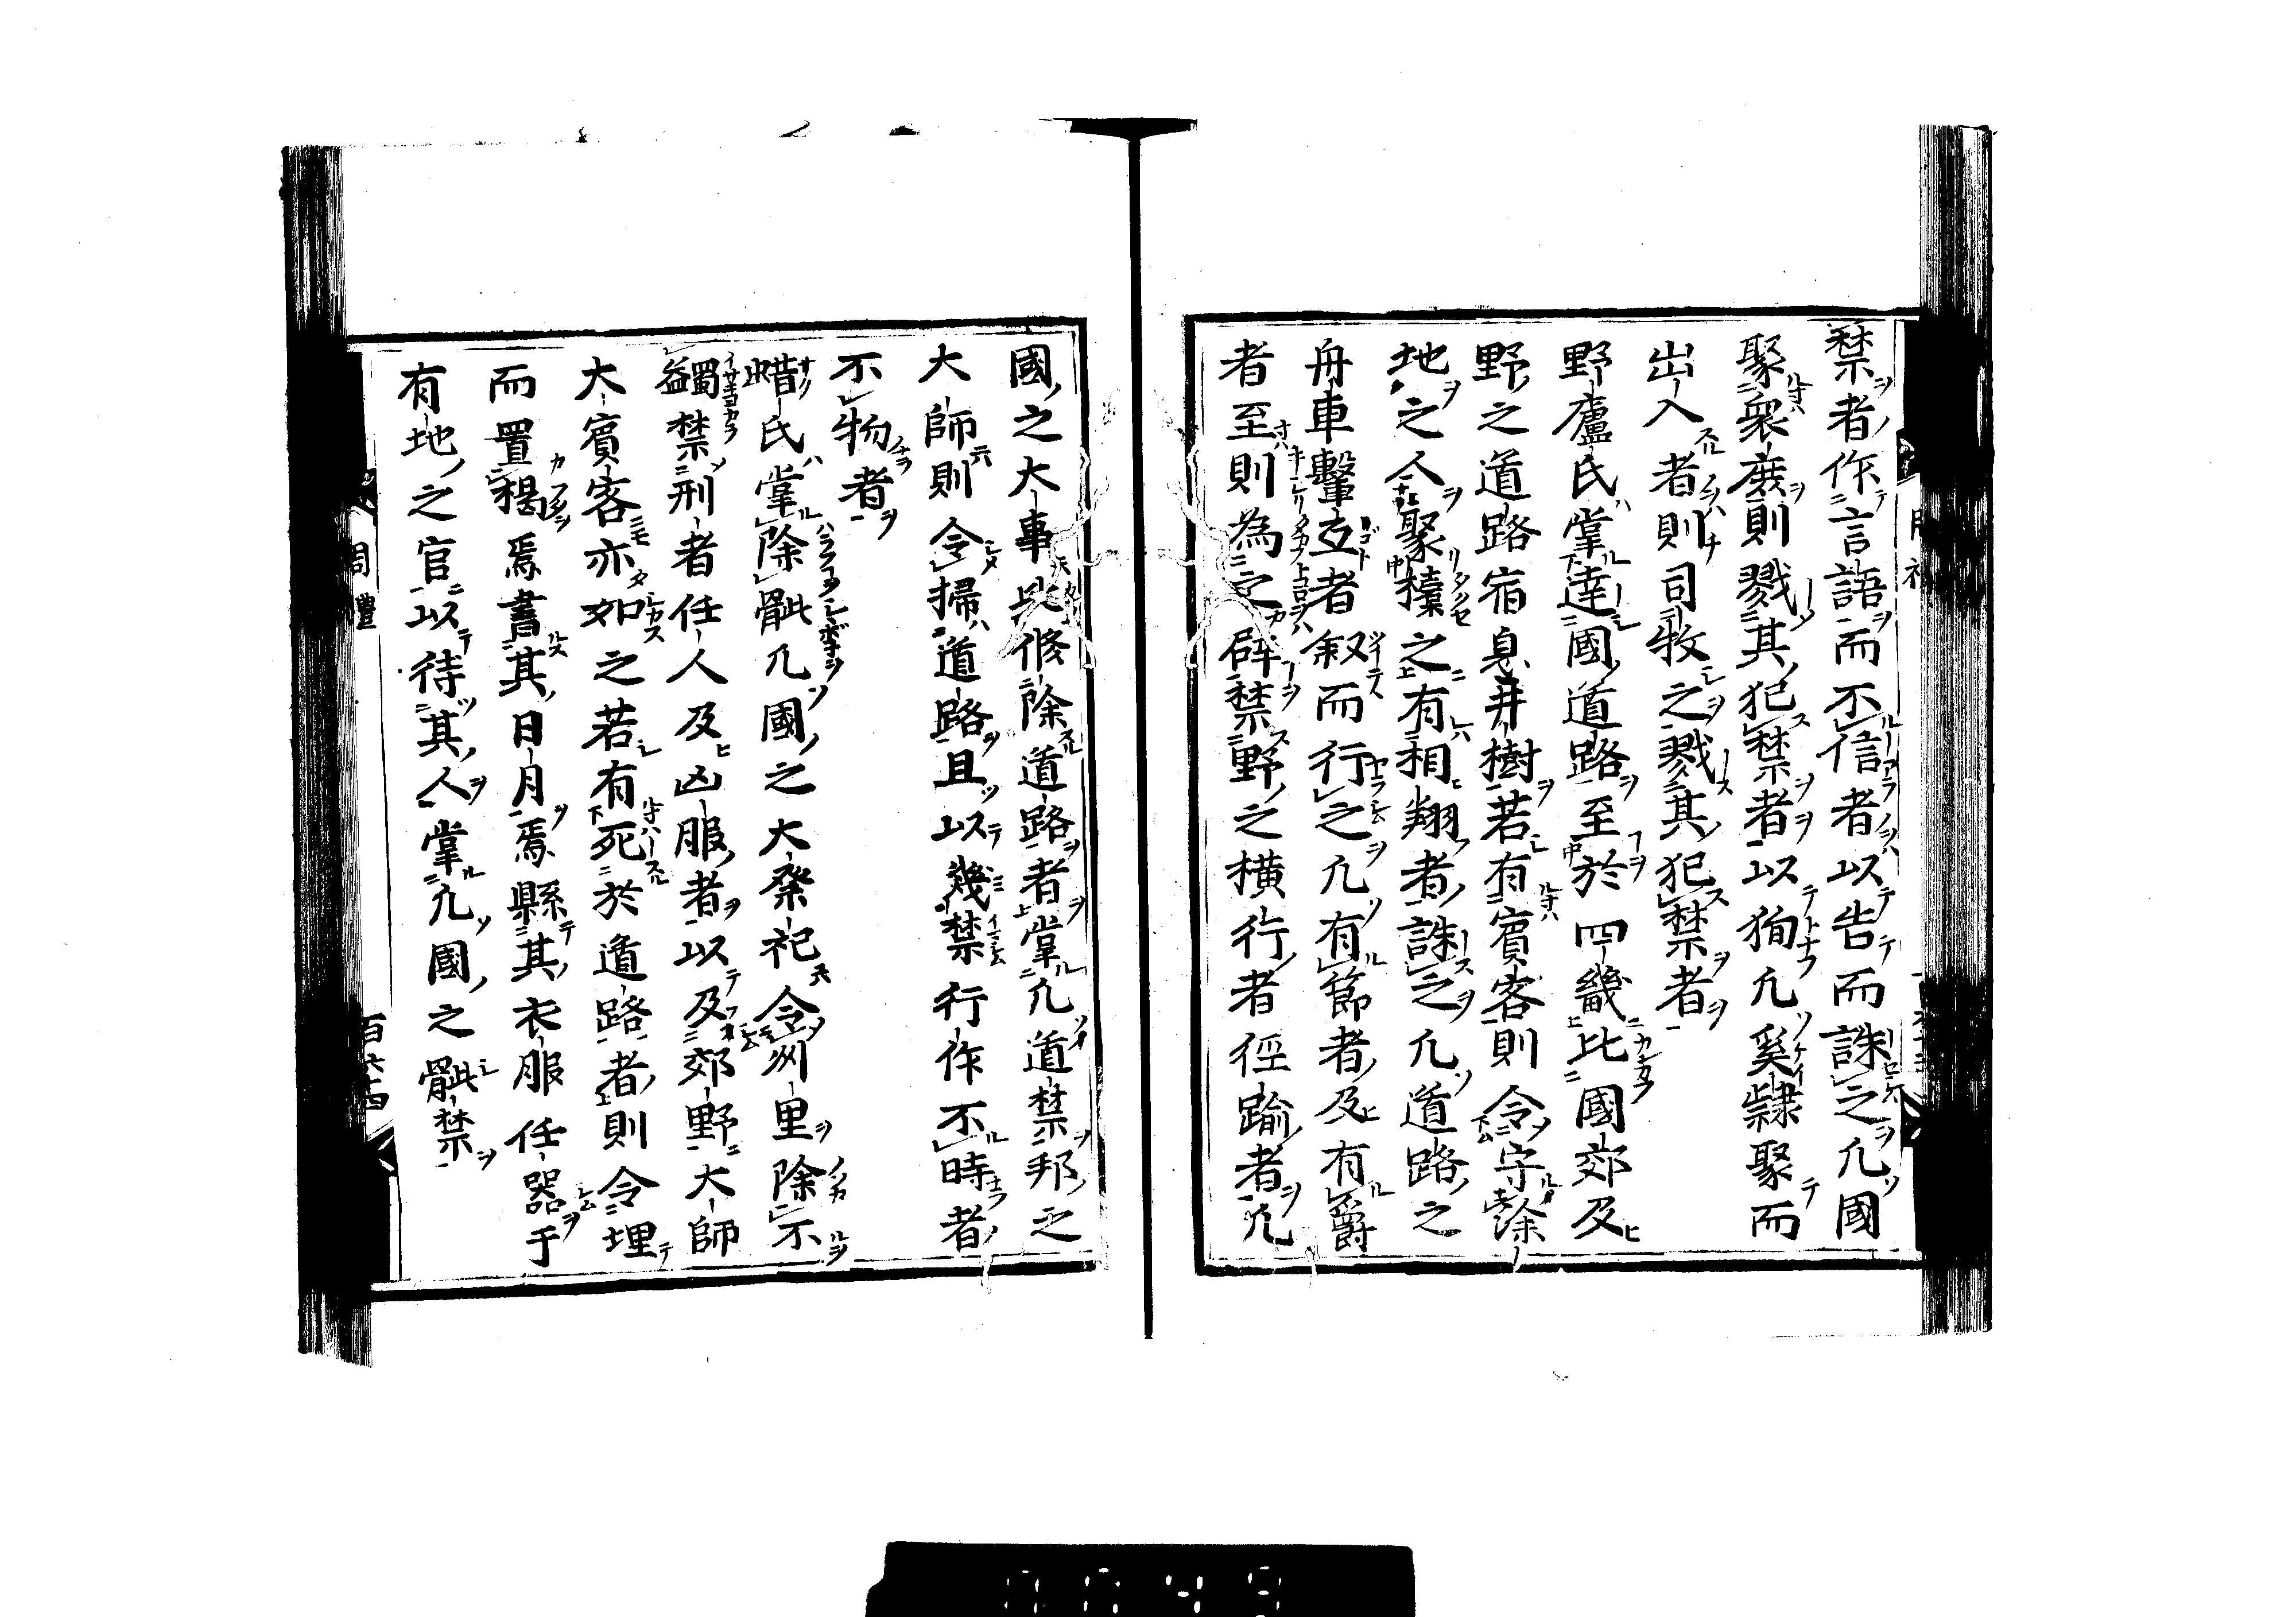 禁者作言語而不信者以告而誅之凢國
聚衆庻則戮其犯禁者以狥凢奚隷聚而
出入者則司牧之戮其犯禁者
野廬氏掌達國道路至於四畿比國郊及
野之道路宿息井樹若有賓客則令守涂
地之人聚橐之有相翔者誅之凢道路之
舟車轚互者叙而行之凢有節者及有爵
者至則為之辟禁野之橫行者徑踰者凢
國之大事比修除道路者掌凢道禁邦之
大師則令掃道路且以幾禁行作不時者
不物者
蜡氏掌除骴凢國之大祭祀令州里除不
蠲禁刑者任人及凶服者以及郊野大師
大賓客亦如之若有死於道路者則令埋
而置楬焉書其日月焉縣其衣服任器于
有地之官以待其人掌凢國之骴禁
周禮
百六十四